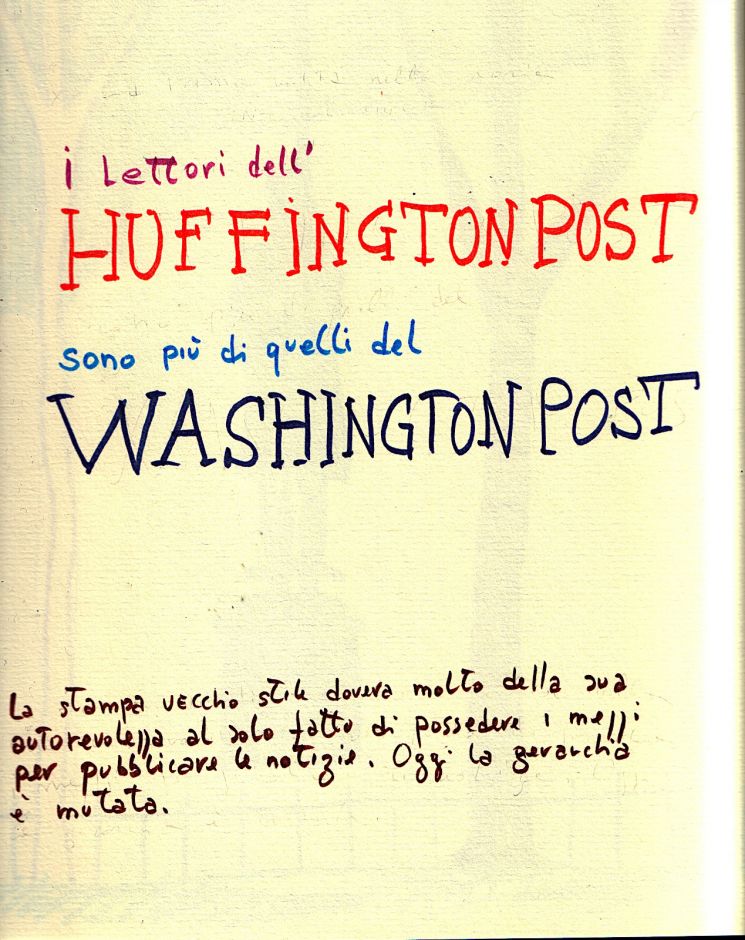 i Lettori dell'
HUFFINGTON POST
sono più di quelli del
WASHINGTON POST
La stampa vecchio stile doveva molto della sua
autorevolezza al solo fatto di possedere i mezzi
per pubblicare le notizie. Oggi la gerarchia
è mutata.